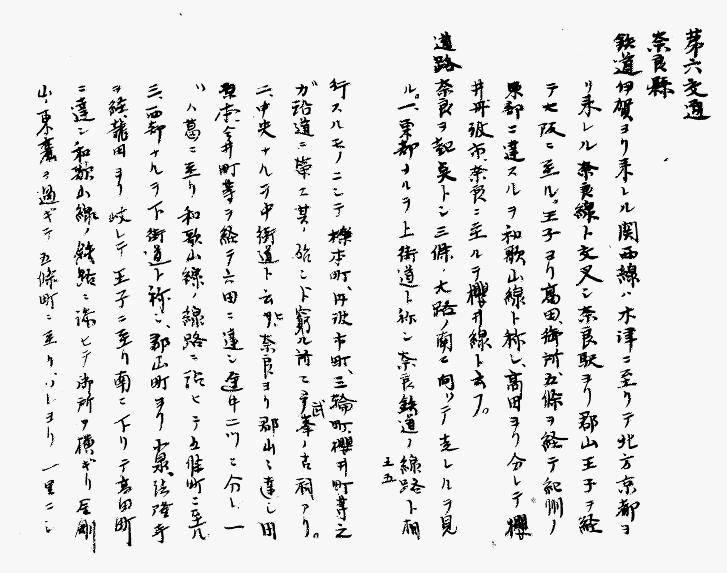 第六交通
奈良縣
鉄道伊賀ヨリ来レル関西線ハ木津ニ至リテ北方京都ヨ
リ来レル奈良線ト交叉シ奈良駅ヨリ郡山王子ヲ経
テ大阪ニ至ル。王子ヨリ高田、御所、五條ヲ経テ紀州ノ
東部ニ達スルヲ和歌山線ト称シ、高田ヨリ分レテ櫻
井丹波市、奈良ニ至ルヲ櫻井線ト云フ。
道路奈良ヲ起点トシ三條ノ大路ノ南ニ向ツテ走レルヲ見
ル。一、東部ナルヲ上街道ト称シ奈良鉄道ノ線路ト相
五五
行スルモノニシテ櫟本町、丹波市町、三輪町、櫻井町等之
ガ沿道ニ栄エ其ノ殆ンド窮ル所ニ多武峯ノ古祠アリ。
二、中央ナルヲ中街道ト云
奈良ヨリ郡山ニ達シ田
原本、今井町等ヲ経テ六田ニ達シ
二ツニ分レ一
ツハ葛ニ至リ和歌山線ノ線路ニ沿ヒテ五條町ニ至ル
三、西部ナルヲ下街道ト称シ、郡山町ヨリ小泉、法隆寺
ヲ経龍田ヨリ岐レテ王子ニ至リ南ニ下リテ高田町
ニ達シ和歌山線ノ鉄路ニ添ヒテ御所ヲ横ギリ金剛
山ノ東麓ヲ過ギテ五條町ニ至リ、ソレヨリ一里ニシ